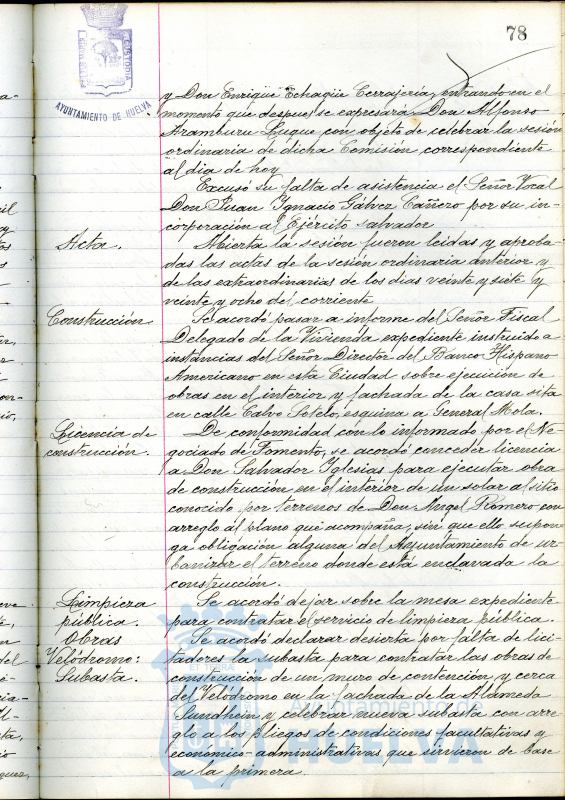 78
AYUNTAMIENTO DE HUELVA
y Don Enrique Echagüe Cerrajería, entrando en el
momento que despues se expresará Don Alfonso
Aramburu Luque con objeto de celebrar la sesión
ordinaria de dicha Comisión correspondiente
al dia de hoy
Excusó su falta de asistencia el Señor Vocal
Don Juan Ignacio Gálvez Cañero por su in-
corporación al Ejército salvador
Acta.
Abierta la sesión fueron leidas y aproba-
das las actas de la sesión ordinaria anterior y
de las extraordinarias de los dias veinte y siete y
veinte y ocho del corriente
Construcción
Se acordó pasar a informe del Señor Fiscal
Delegado de la Vivienda expediente instruido a
instancias del Señor Director del Banco Hispano
Americano en esta Ciudad sobre ejecución de
obras en el interior y fachada de la casa sita
en calle Calvo Sotelo, esquina a General Mola.
Licencia de
construcción.
De conformidad con lo informado por el Ne-
gociado de Fomento, se acordó conceder licencia
a Don Salvador Iglesias para ejecutar obra
de construcción en el interior de un solar al sitio
conocido por terrenos de Don Angel Romero con
arreglo al plano que acompaña, sin que ello supon-
ga obligación alguna del Ayuntamiento de ur-
banizar el terreno donde está enclavada la
construcción.
Limpieza
pública.
Se acordó dejar sobre la mesa expediente
para contratar el servicio de limpieza pública.
Obras
Velódromo:
Subasta.
Se acordó declarar desierta por falta de lici-
tadores la subasta para contratar las obras de
construcción de un muro de contención y cerca
del Velódromo en la fachada de la Alameda
Sundhein y celebrar nueva subasta con arre-
glo a los pliegos de condiciones facultativas y
económico-administrativas que sirvieron de base
a la primera.
Ayuntamiento de
HUELVA